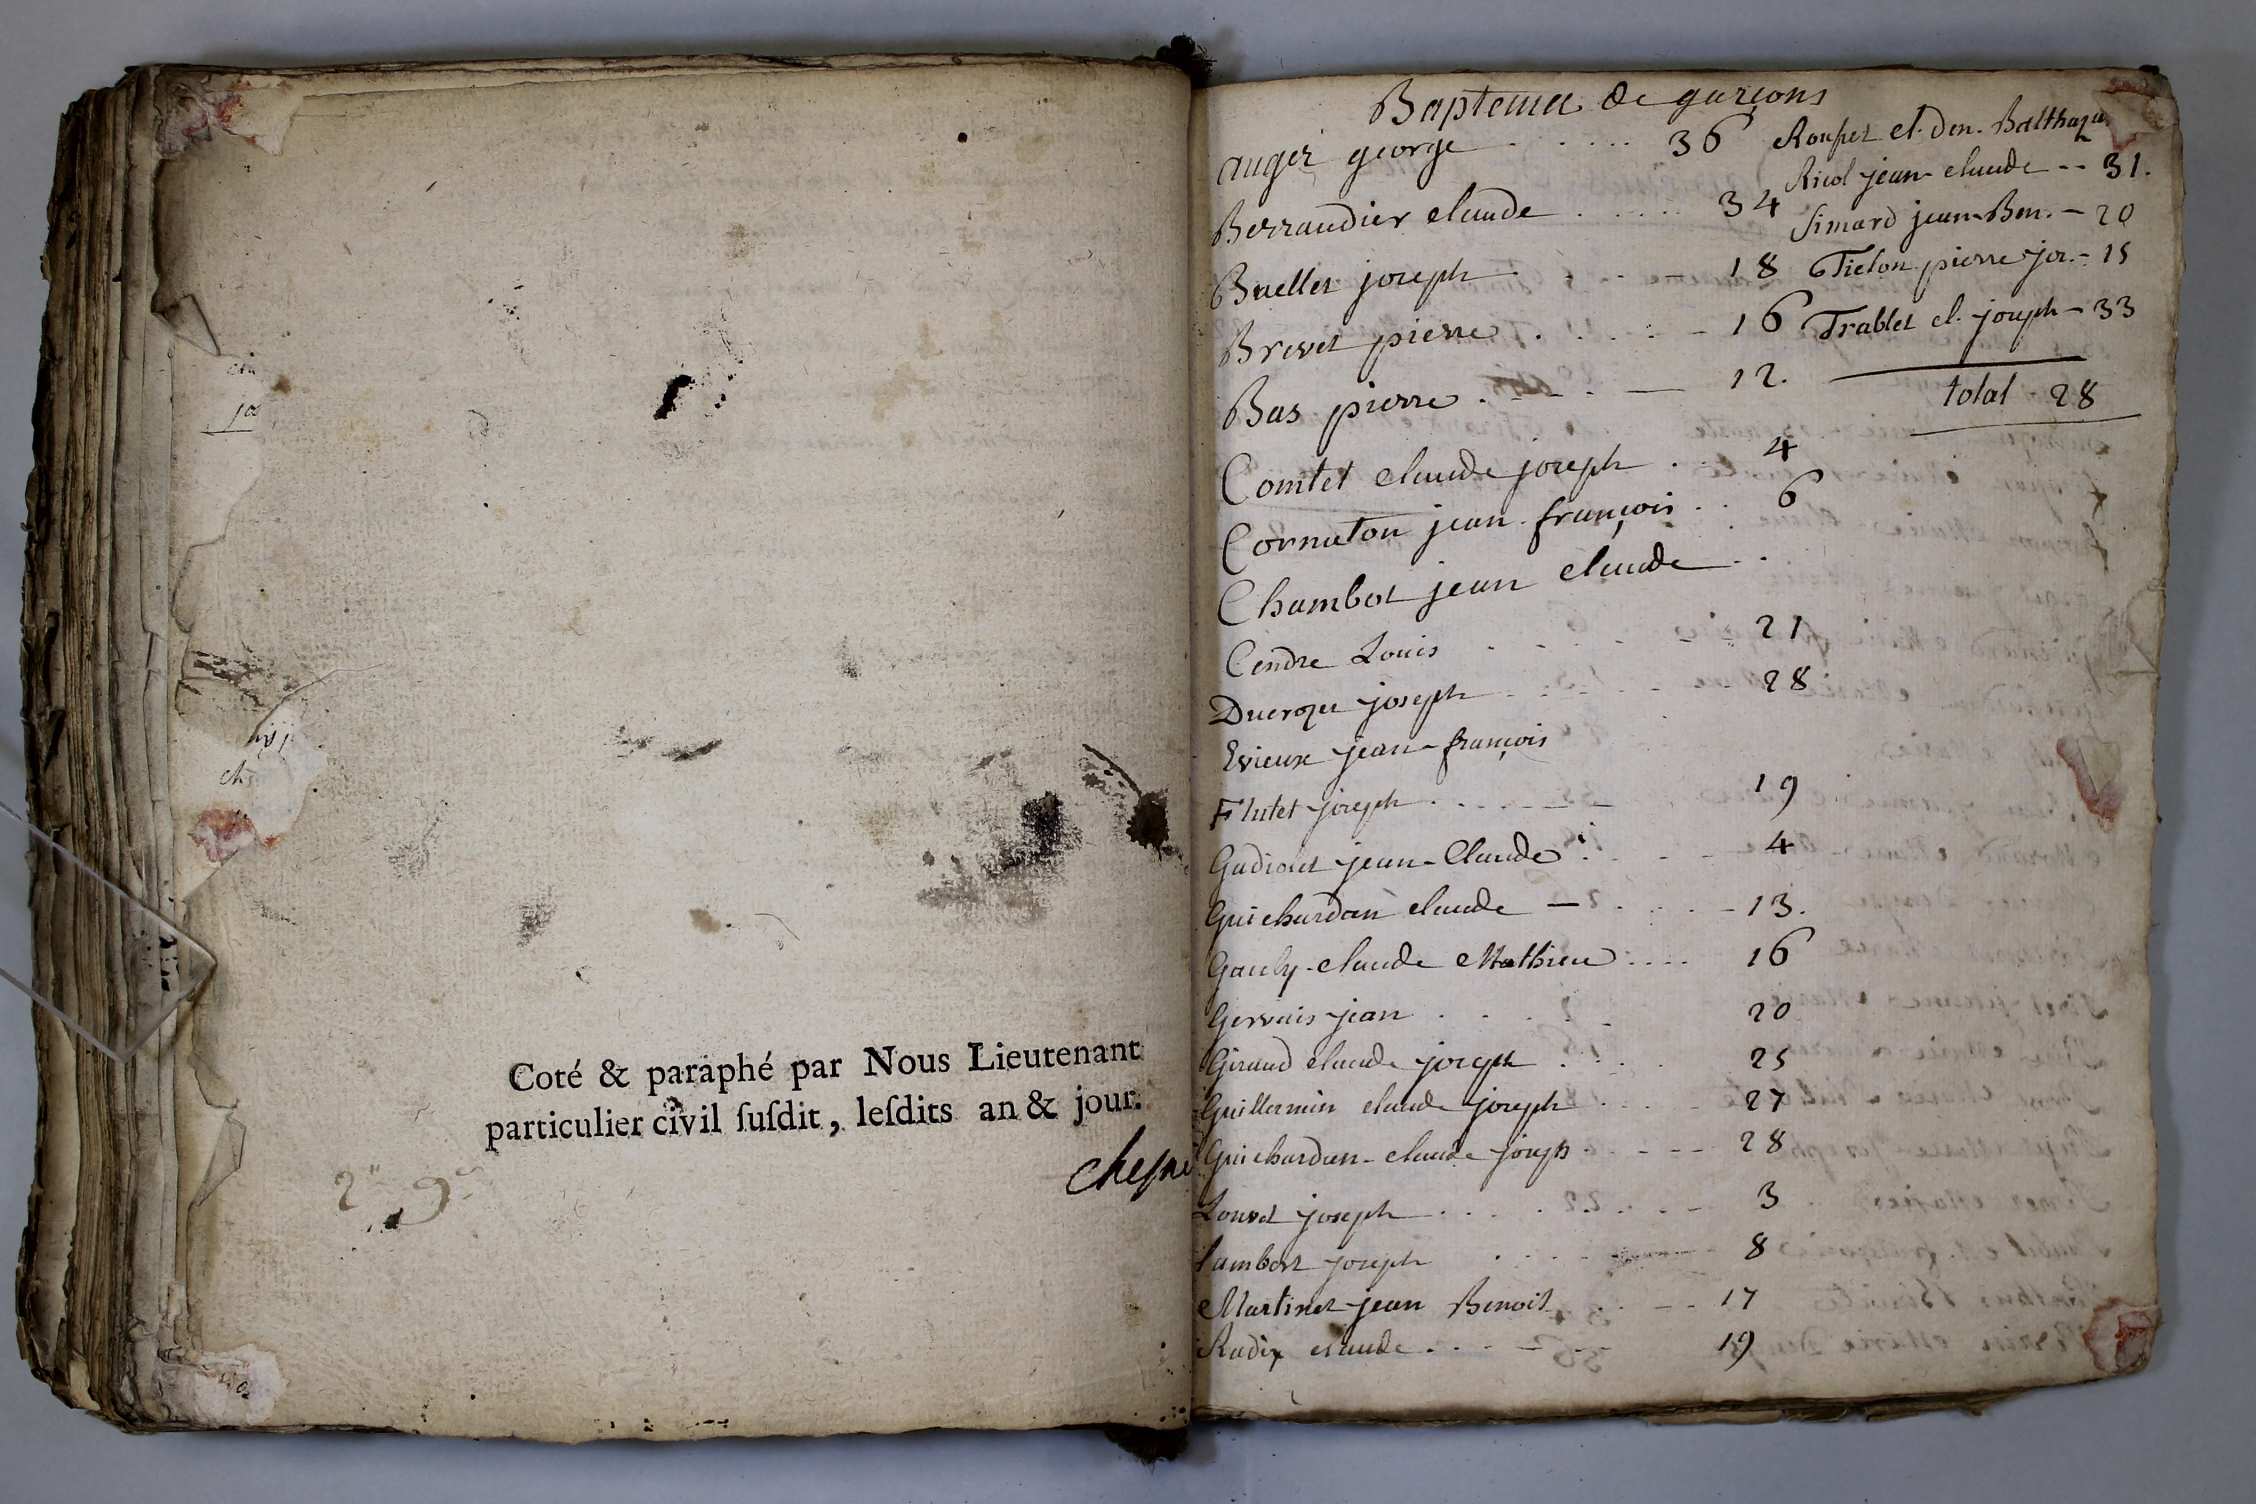 Coté & paraphé par Nous Lieutenant
particulier civil ſuſdit, leſdits an & jour.
Baptemes de garçons
auger george . . . . . . 36
Berraudier claude . . . . . . 34
Bruellet joseph . . . . - 18
Brevet pierre . . . . - 16
Bas pierre . . . . — 12.
Comtet claude joseph . . 4
Cornuton jean françois . . 6
Chambot jean claude . .
Cendre Louis . . . . . 21
Ducrozet joseph . . . . . 28
Evieux jean-françois
Flutet joseph . . . . . 19
Gadiolet jean-Claude . . . - 4
Guichardan claude — . . . - 13.
Gauly-claude Mathieu . . . . 16
Gervais jean . . . . . 20
Giraud claude joseph . . . 25
Guillermin claude joseph . . . - 27
Guichardan-claude joseph . . - - - 28
Louvet joseph . . . . . - 3
Lambert joseph . . . . . - 8
Martinet jean Benoit . . - - 17
Radix claude . . . - - - 19
cl. Den. Balthaza
Ricol jean-claude -- 31.
Simard jean-Ben. - 20
pierre jos. - 15
Trablet cl. joseph - 33
total 28